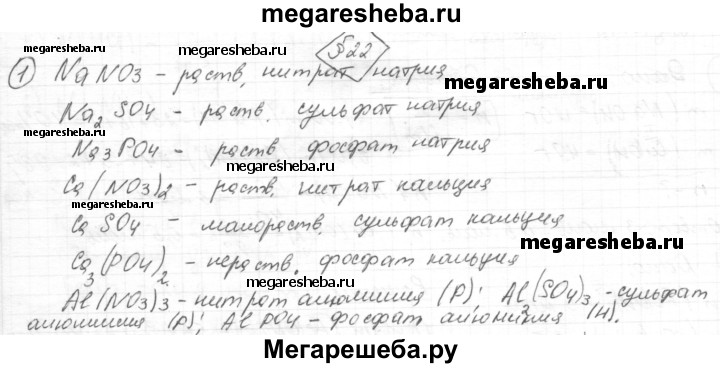 megaresheba.ru
§22
megaresheba.ru megaresheba.ru
① NaNO3 – раств, нитрат натрия
megaresheba.ru
Na2SO4 – раств. сульфат натрия
megaresheba.ru
Na3PO4 – раств, фосфат натрия
Ca(NO3)2 – раств, нитрат кальция
CaSO4 – малораств, сульфат кальция
megaresheba.ru
Ca3(PO4)2 – нераств, фосфат кальция
megaresheba.ru
Al(NO3)3 – нитрат алюминия (Р); Al(SO4)3 – сульфат
алюминия (Р); AlPO4 – фосфат алюминия (Н).
Мегарешеба.ру